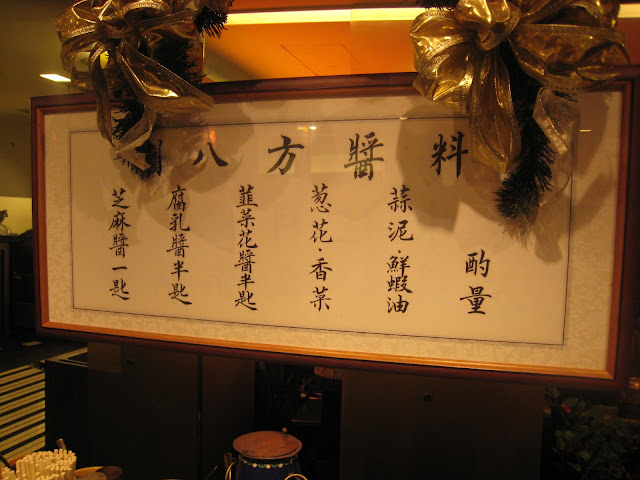 八方醬料
芝麻醬一匙
腐乳醬半匙
韮菜花醬半匙
葱花·香菜
蒜泥·鮮蝦油
酌量